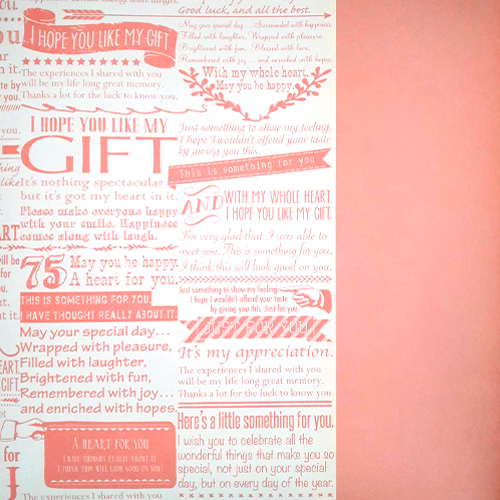 I HOPE YOU LIKE MY GIFT
The experiences I shared with you
will be my life long great memory.
Thanks a lot for the luck to know you.
I HOPE YOU LIKE MY
GIFT
It's nothing spectacular
but it's got my heart in it.
Please make everyone happy
with your smile. Happiness
comes along with laugh.
75 May you be happy.
A heart for you.
THIS IS SOMETHING FOR YOU.
I HAVE THOUGHT REALLY ABOUT IT.
May your special day...
Wrapped with pleasure,
Filled with laughter,
Brightened with fun,
Remembered with joy...
and enriched with hopes.
A HEART FOR YOU
I HAVE THOUGHT REALLY ABOUT IT.
I THINK THIS WILL LOOK GOOD ON YOU!
The experiences I shared with you
Good luck, and all the best.
May your special day Surrounded with happiness,
Filled with laughter, Wrapped with pleasure,
Brightened with fun, Blessed with love,
Remembered with joy ... and enriched with hope.
With my whole heart.
May you be happy.
Just something to show my feeling.
I hope I wouldn't offend your taste
by giving you this.
This is something for you
AND WITH MY WHOLE HEART.
I HOPE YOU LIKE MY GIFT.
I'm very glad that I was able to
meet you. This is something for you.
I think this will look good on you.
Just something to show my feeling
I hope I wouldn't offend your taste
by giving you this. Just for you.
JUST FOR YOU
It's my appreciation.
The experiences I shared with you
will be my life long great memory.
Thanks a lot for the luck to know you.
Here's a little something for you.
I wish you to celebrate all the
wonderful things that make you so
special, not just on your special
day, but on every day of the year.